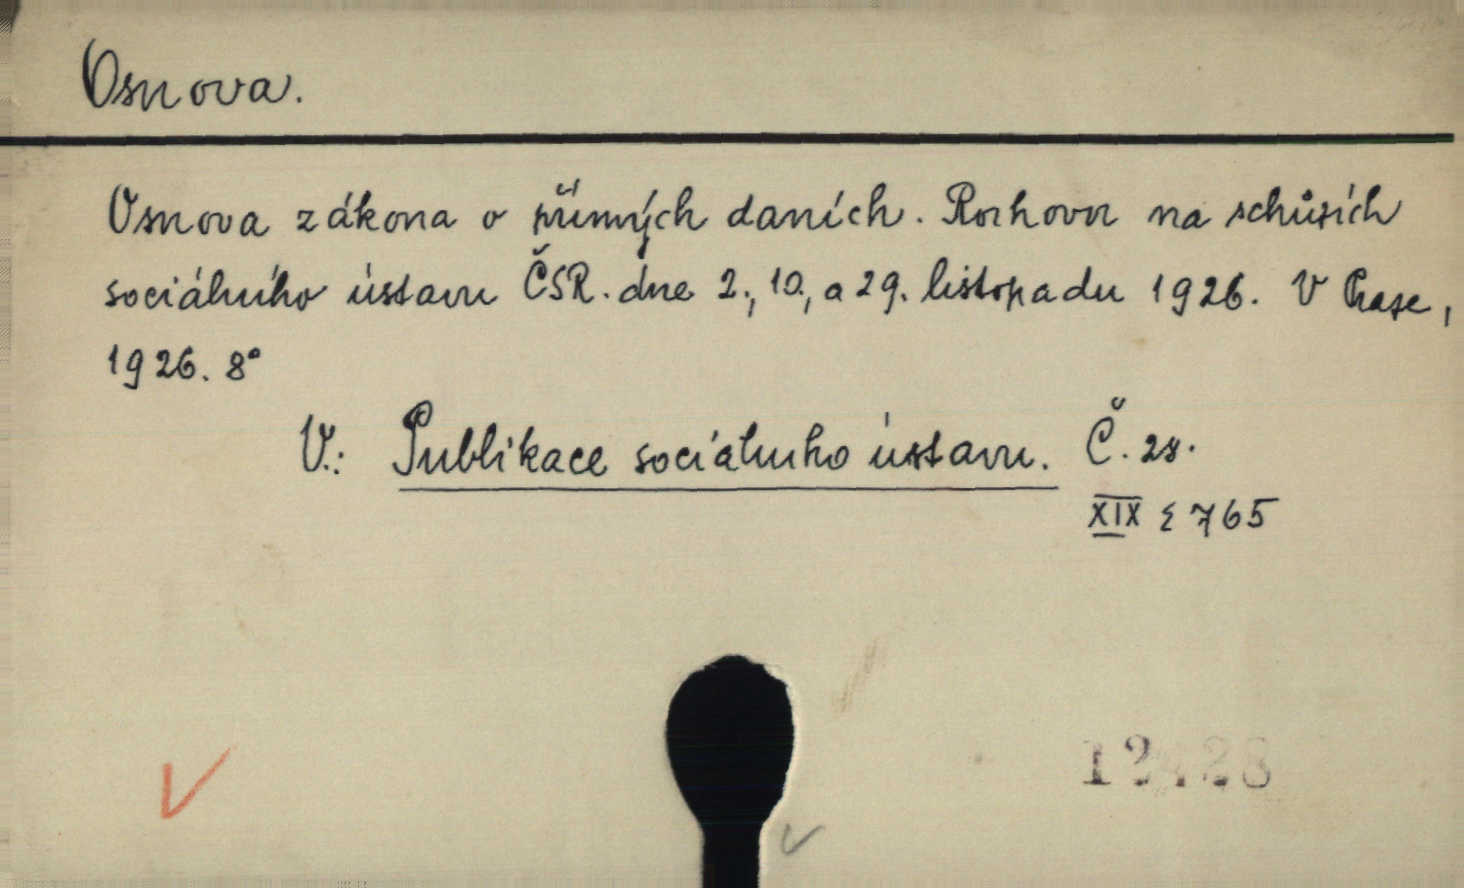 Osnova.
Osnova zákona o přímých daních. Rozhovor na schůzích
sociálního ústavu ČSR. dne 2., 10., a 29. listopadu 1926. V Praze,
1926. 8°
V.: Publikace sociálního ústavu. Č. 28.
XIX E 765
12428